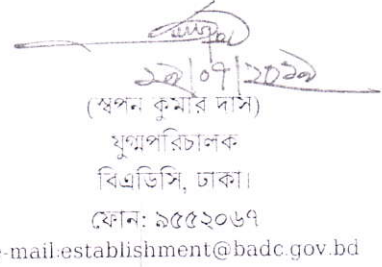 ২১/০৭/২০১৯
(স্বপন কুমার দাস)
যুগ্মপরিচালক
বিএডিসি, ঢাকা।
ফোন: ৯৫৫২০৬৭
e-mail:establishment@badc.gov.bd